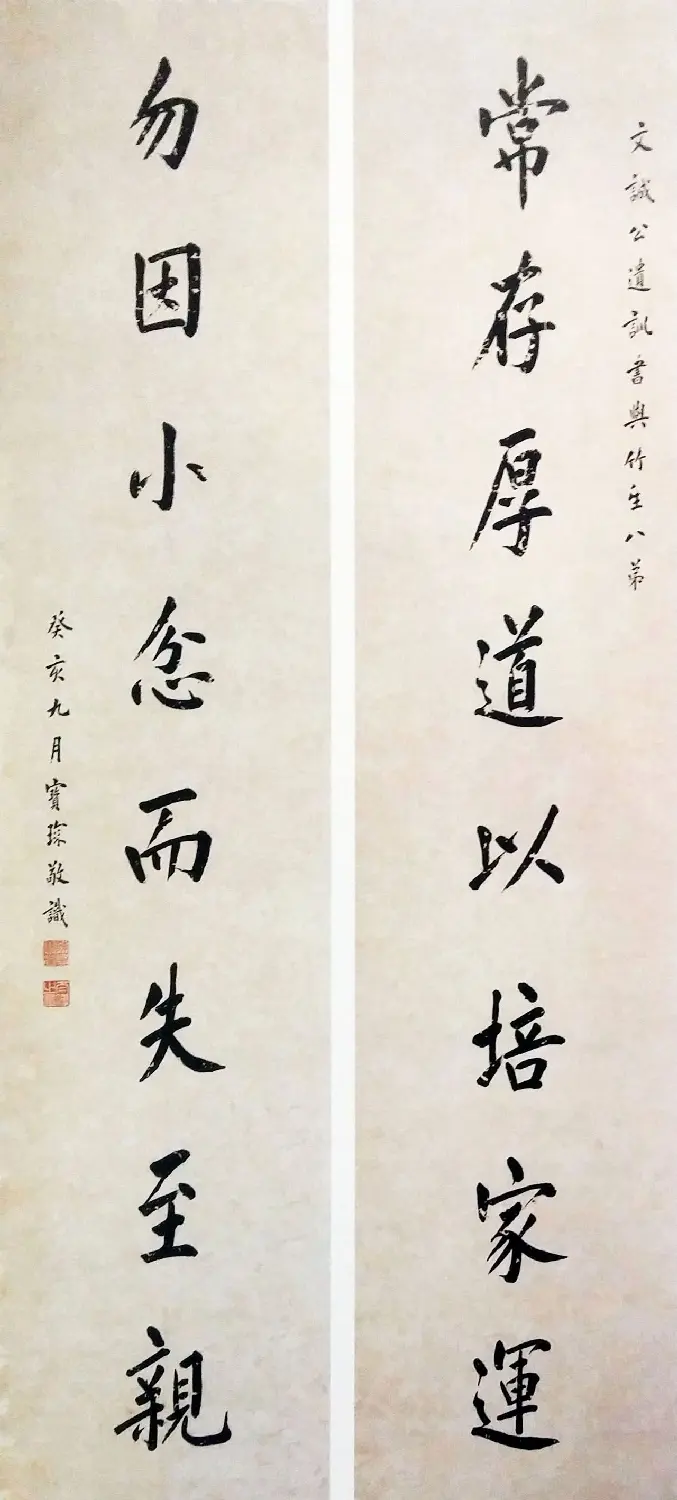 文誠公遺訓書與竹坐八弟
常存厚道以培家運
勿因小忿而失至親
癸亥九月寶琛敬識